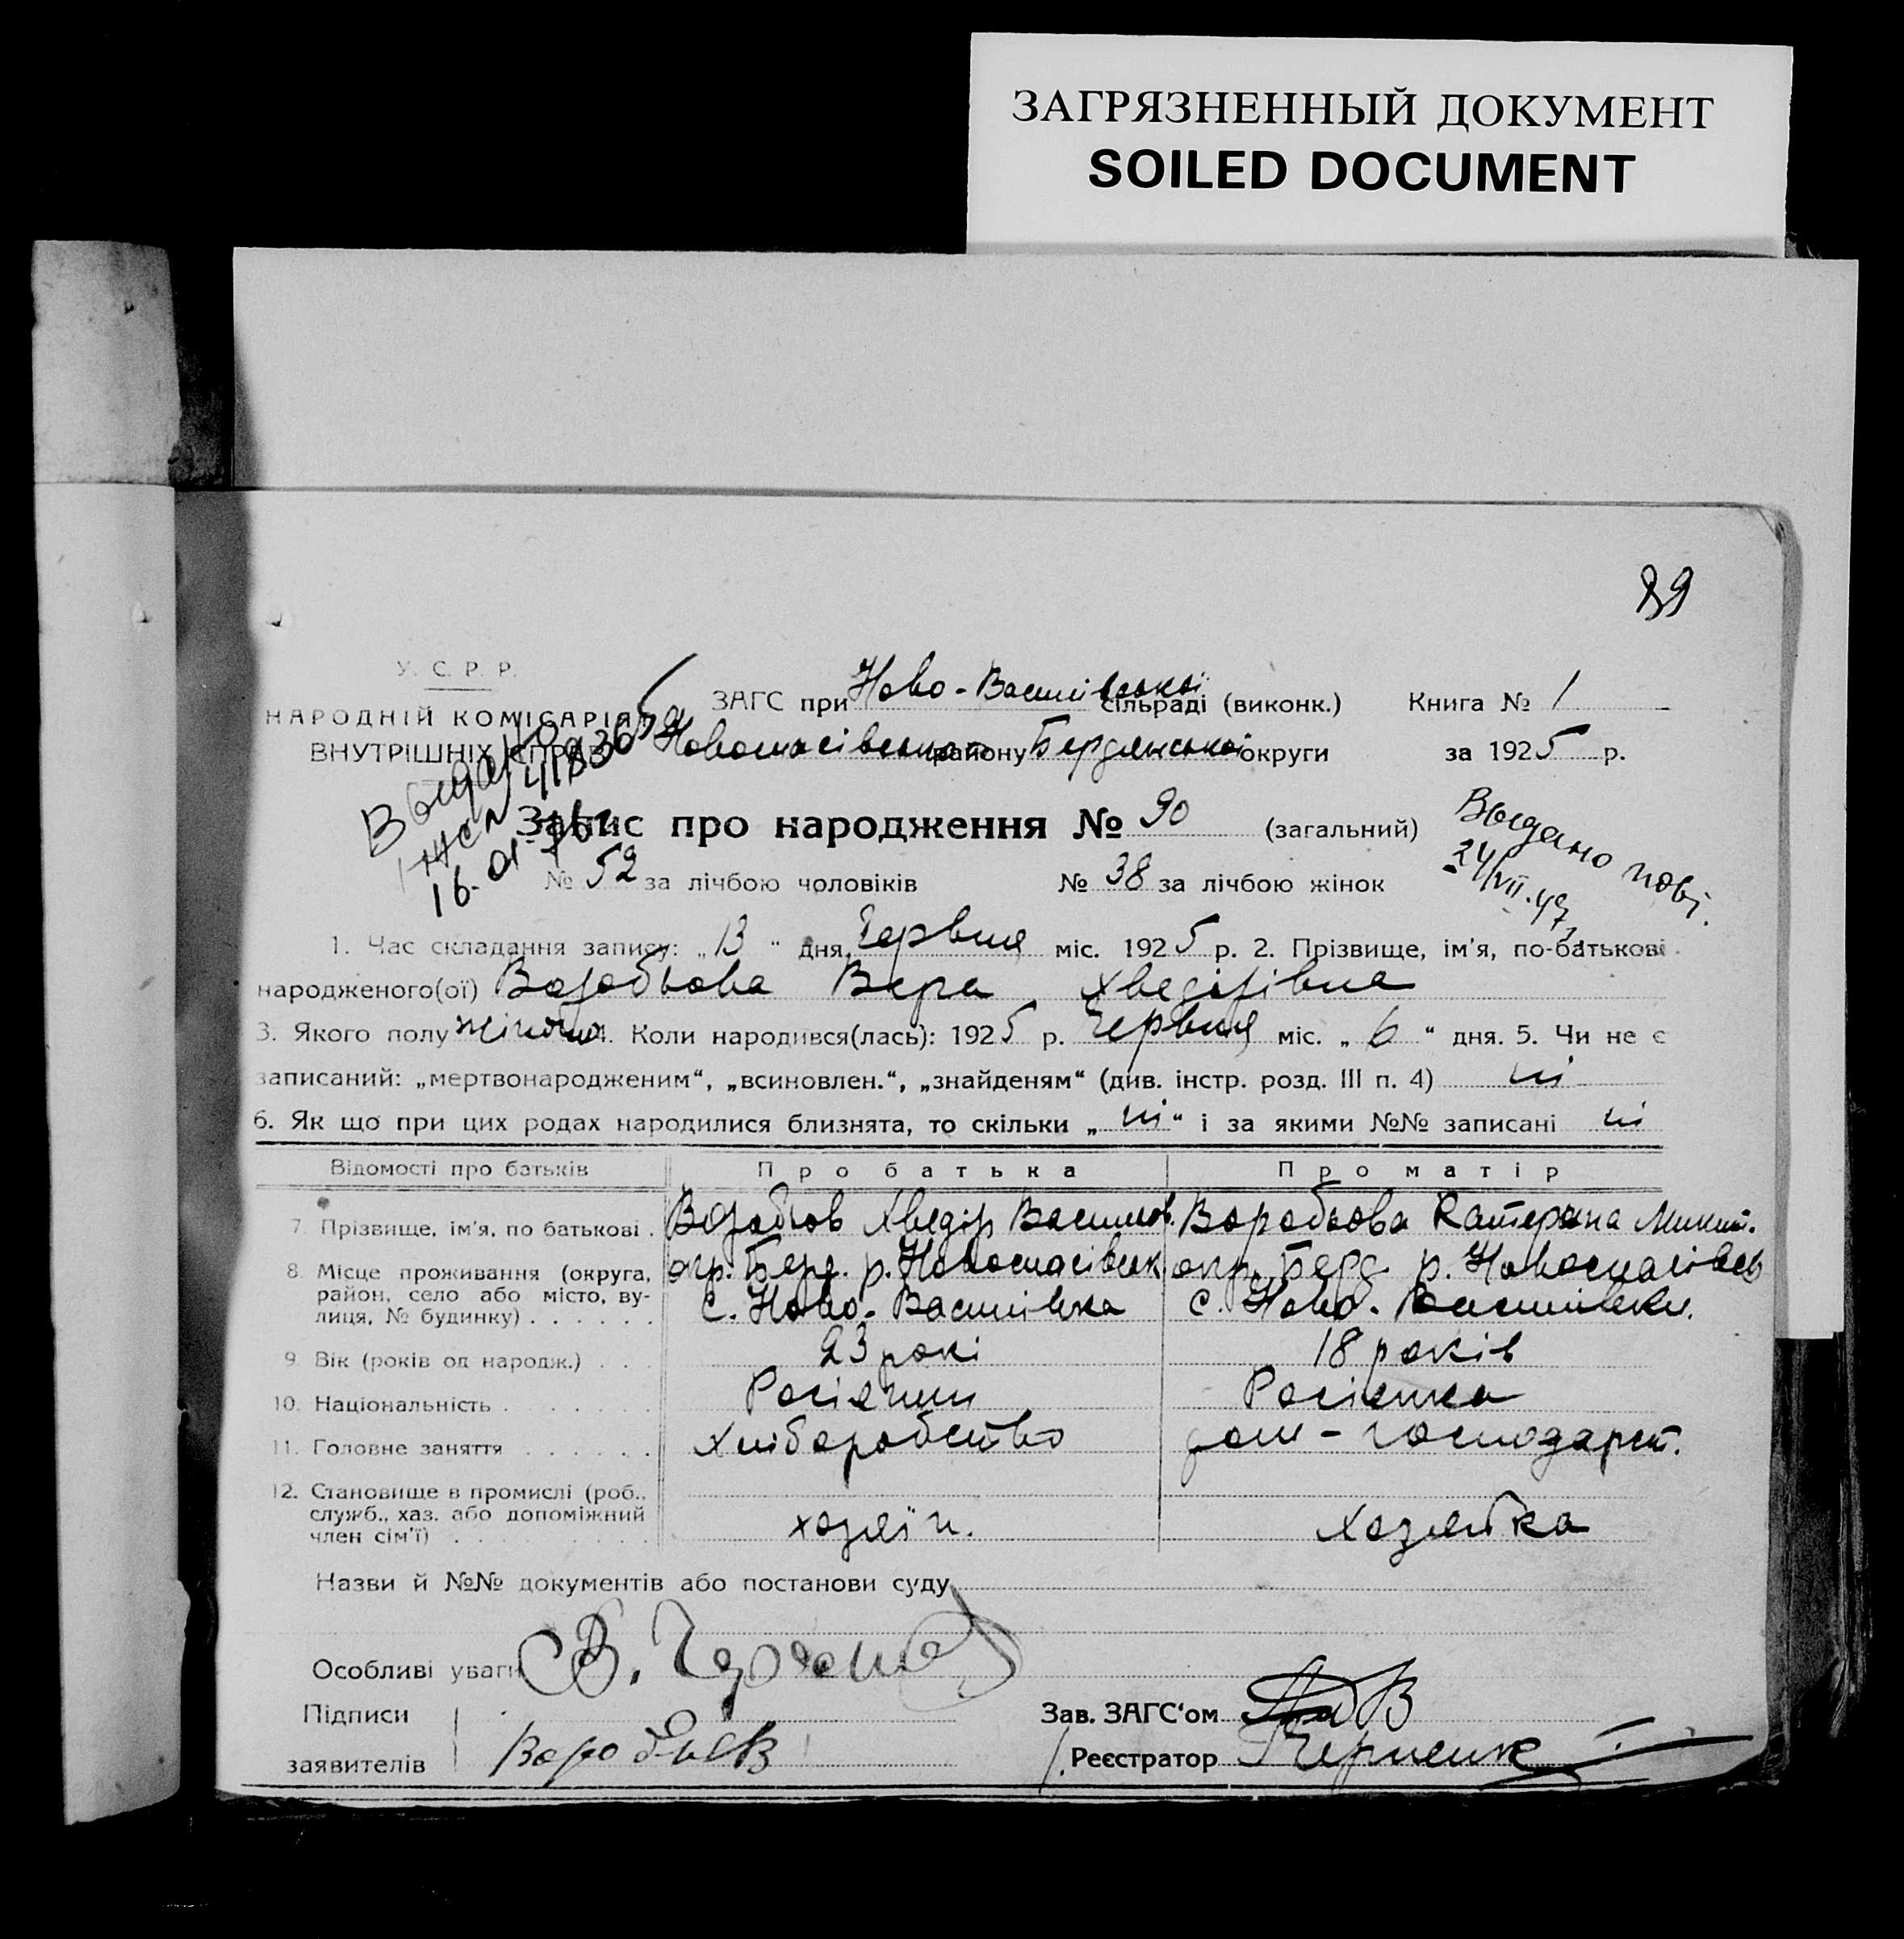 ЗАГРЯЗНЕННЫЙ ДОКУМЕНТ
SOILED DOCUMENT
89
У. С. Р. Р.
НАРОДНІЙ КОМІСАРІЯТ
ВНУТРІШНІХ СПРАВ
ЗАГС при Ново-Василівської сільраді (виконк.) Книга № 1
Новоспасівського району Бердянської округи за 1925 р.
Запис про народження № 90 (загальний)
Выдано
16-01-
Выдано повт.
24/VII.47
№ 52 за лічбою чоловіків № 38 за лічбою жінок
1. Час складання запису: „13“ дня Червня міс. 1925 р. 2. Прізвище, ім'я, по-батькові
народженого(ої) Воробьова Вера Хведорівна
3. Якого полу жіночо 4. Коли народився(лась): 1925 р. Червня міс. „6“ дня. 5. Чи не є
записаний: „мертвонародженим“, „всиновлен.“, „знайденям“ (див. інстр. розд. III п. 4) ні
6. Як що при цих родах народилися близнята, то скільки „ні“ і за якими №№ записані ні
Відомості про батьків Про батька Про матір
7. Прізвище, ім'я, по батькові . Воробьов Хведір Василов. Воробьова Катерина Микит.
8. Місце проживання (округа, окр. Берд. р. Новоспасівськ окр. Берд. р. Новоспасівськ
район, село або місто, ву- с. Ново-Василівка с. Ново-Василівки.
лиця, № будинку) . . . . . .
9. Вік (років од народж.) . . . 23 рокі 18 років
10. Національність . . . . . . . Росіянин Росіянка
11. Головне заняття . . . . . . Хліборобство дом-господарст.
12. Становище в промислі (роб.,
служб., хаз. або допоміжний хозяїн. Хозяйка
член сім'ї) . . . . . . . . .
Назви й №№ документів або постанови суду
Особливі уваги
Підписи Зав. ЗАГС'ом
заявителів Воробьев Реєстратор